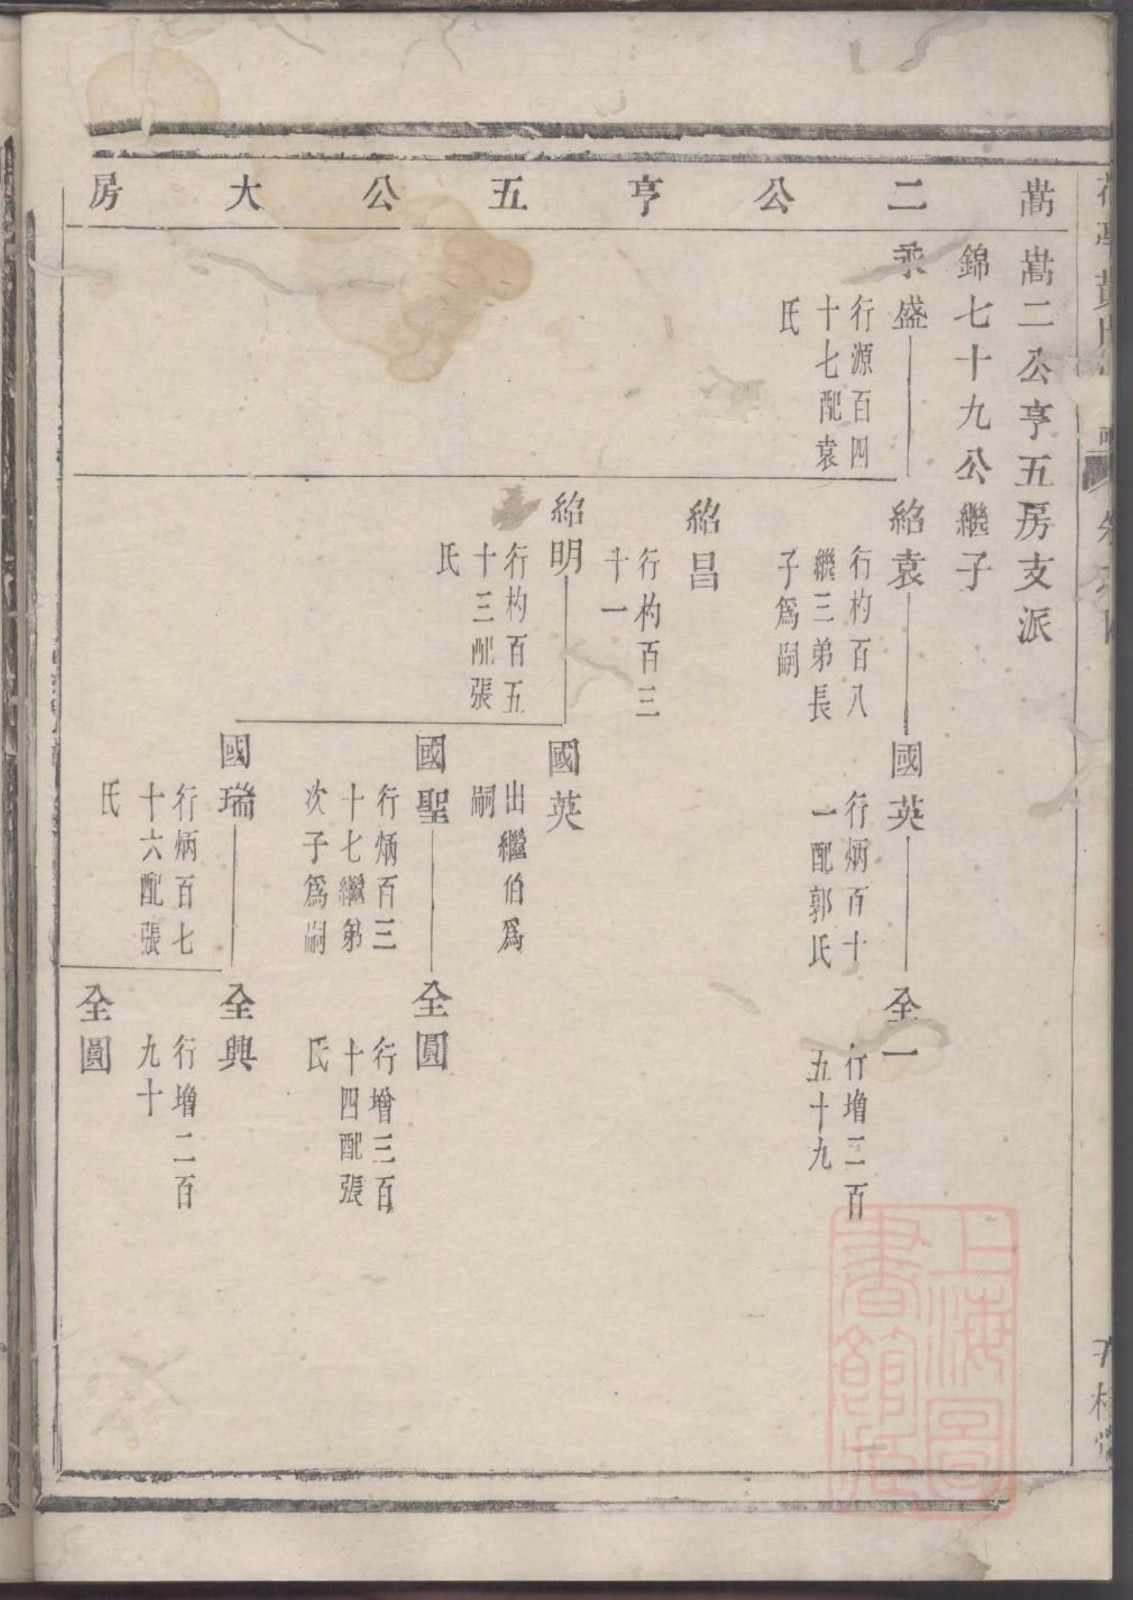 嵩二公亨五公大房
嵩二公亨五房支派
錦七十九公繼子
秉盛
行源百四
十七配袁
氏
紹袁
行杓百八
繼三弟長
子爲嗣
國英
行炳百十
一配郭氏
全一
行增二百
五十九
紹昌
行杓百三
十一
紹明
行杓百五
十三配張
氏
國英
出繼伯爲
嗣
國聖
行炳百三
十七繼弟
次子爲嗣
全圓
行增三百
十四配張
氏
國瑞
行炳百七
十六配張
氏
全興
行增二百
九十
全圓
上海圖
書館藏